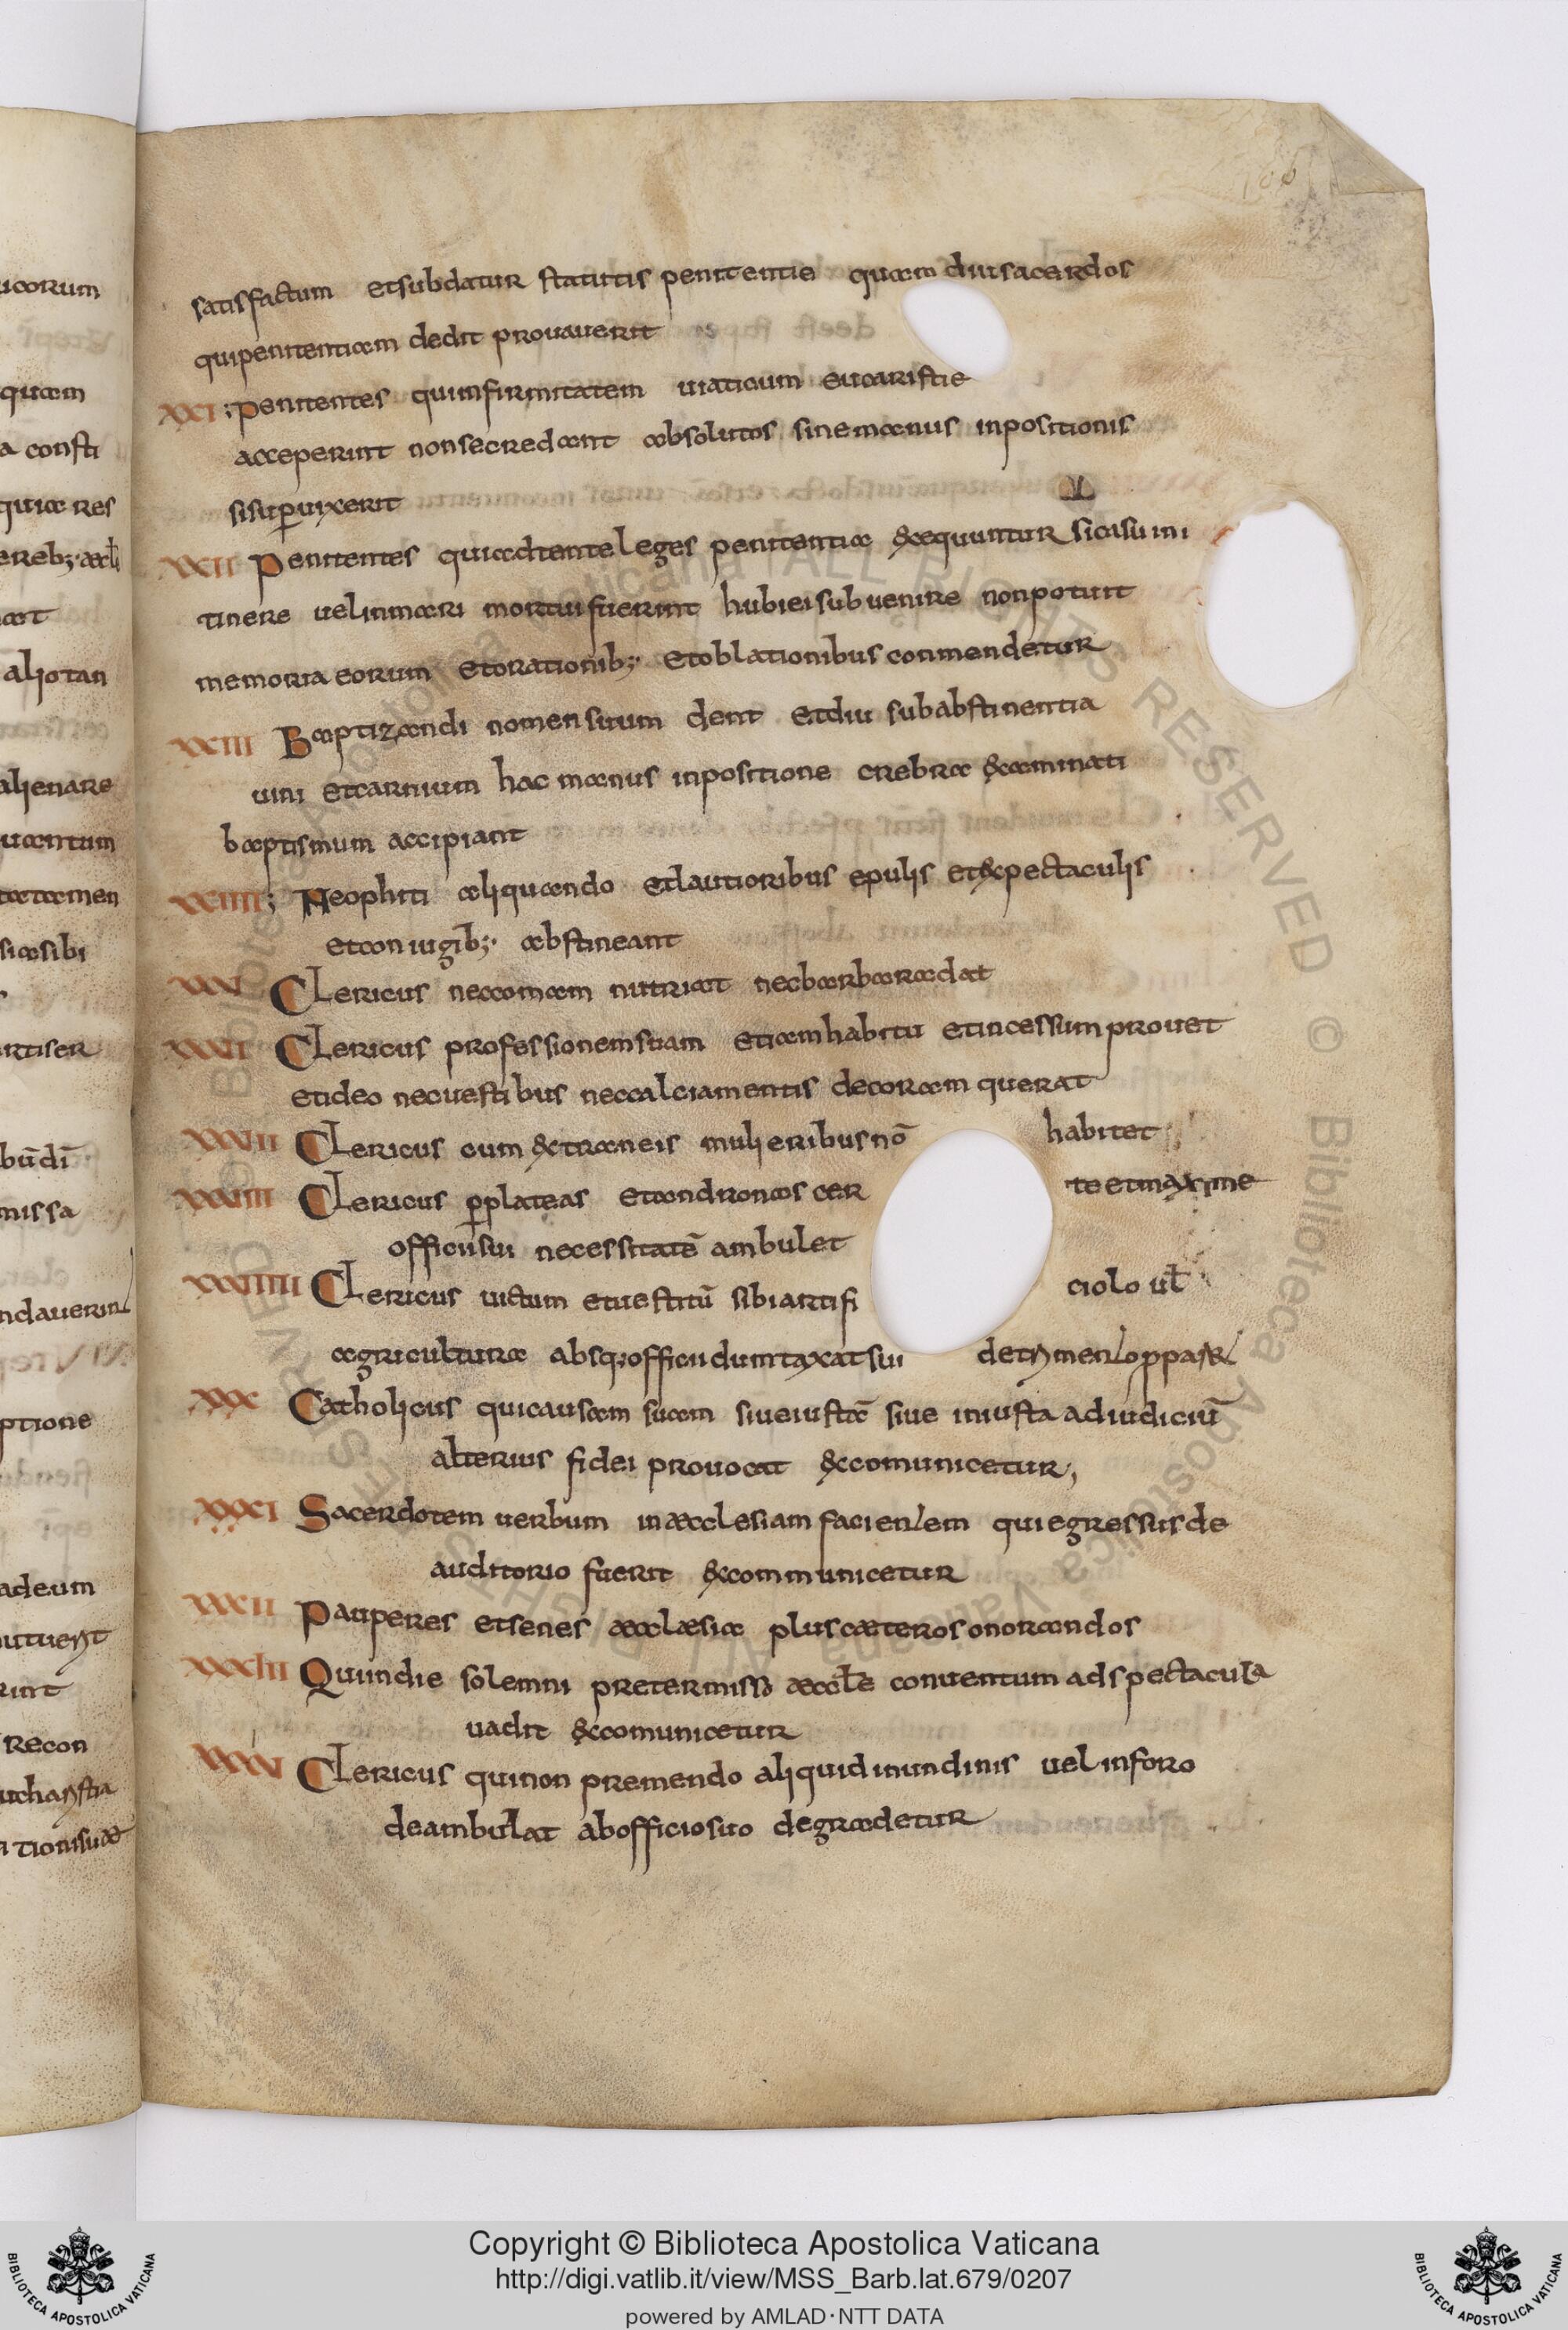 satisfactum et subdatur statutis penitentie quam diu sacerdos
qui penitentiam dedit provauerit
XXI; penitentes qui infirmitatem uiaticum eucaristie
acceperint non se credant absolutos sine manus inpositionis
si sup̄uixerit
XXII Penitentes qui adtente leges penitentiæ &xequuntur si casu in i
tinere uel in mari mortui fuerint hubi ei subuenire non potuit
memoria eorum et orationib; et oblationibus conmendetur
XXIII Baptizandi nomen suum dent et diu sub abstinentia
uini et carnium hac manus inpositione crebra &xaminati
baptismum accipiant
XXIIII; Neophiti aliquando et lautioribus epulis et &xpectaculis
et coniugib; abstineant
XXV Clericus nec comam nutriat nec barba radat
XXVI Clericus professionem suam etiam habitu et incessum prouet
et ideo nec uestibus nec calciamentis decoram querat
XXVII Clericus cum &xtraneis mulieribus nō habitet
XXVIII Clericus p̄ plateas et andronas cer te et maxime
officii sui necessitatē ambulet
XXVIIII Clericus uictum et uestitū sibi artifi ciolo ul̄
agricultura absq; officii dumtaxat sui detrimento ppar&
XXX Catholicus qui causam suam siue iustā siue iniusta ad iudiciū
alterius fidei prouocat &xcomunicetur;
XXXI Sacerdotem uerbum in æcclesiam facientem qui egressus de
auditorio fuerit &xcommunicetur
XXXII Pauperes et senes æcclæsiæ plus cæteros onorandos
XXXIII Qui in die solemni pretermisso æccl̄e conuentum ad spectacula
uadit &xcomunicetur
XXXIV Clericus qui non premendo aliquid inundinis uel in foro
deambulat ab officio suo degradetur
Copyright © Biblioteca Apostolica Vaticana
http://digi.vatlib.it/view/MSS_Barb.lat.679/0207
powered by AMLAD·NTT DATA
BIBLIOTECA APOSTOLICA VATICANA
BIBLIOTECA APOSTOLICA VATICANA